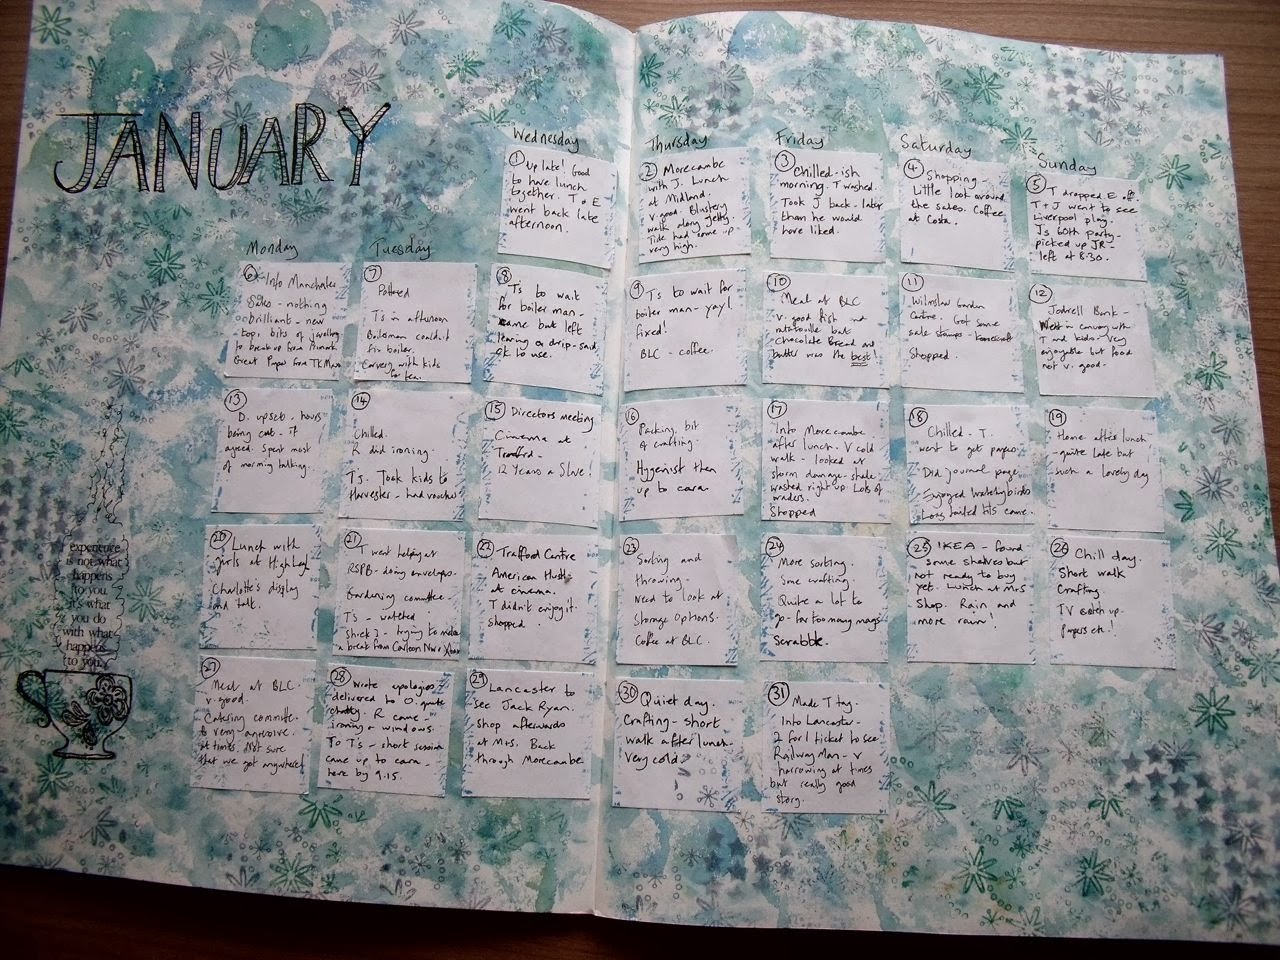 JANUARY
Wednesday
Thursday
Friday
Saturday
Sunday
Monday
Tuesday
1 Up late! Good
to have lunch
together. T + E
went back late
afternoon.
2 Morecambe
with J. Lunch
at Midland
v. good. Blustery
walk along jetty
Tide had come up
very high.
3 Chilled-ish
morning. T washed.
Took J back - later
than he would
have liked.
4 Shopping.
Little look around
the sales. Coffee
at Costa.
5 T dropped E off
T + J went to see
Liverpool play.
J's 60th party -
picked up JR -
left at 8.30.
6 Into Manchester
Sales - nothing
brilliant - new
top, bits of jewellery
to break up from Primark.
Great Paper from TK Maxx
7 Pottered
T's in afternoon
Boilerman couldn't
fix boiler.
Carvery with kids
for tea.
8 T's to wait
for boiler man -
came but left
leaving a drip - said
ok to use.
9 T's to wait for
boiler man - yay!
fixed!
BLC - coffee.
10 Meal at BLC
v. good fish and
ratatouille but
Chocolate Bread and
butter was the best!
11 Wilmslow Garden
Centre. Got some
sale stamps -
Shopped.
12 Jodrell Bank -
in convoy with
T and kids - Very
enjoyable but food
not v. good.
13 D. upset - hours
being cut - if
agreed. Spent most
of morning talking.
14 Chilled.
R did ironing.
T's. Took kids to
Harvester - had voucher
15 Directors meeting
Cinema at
Trafford -
12 Years a Slave!
16 Packing, bit
of crafting.
Hygienist then
up to cara.
17 Into Morecambe
after lunch. V cold
walk - looked at
storm damage - shale
washed right up. Lots of
waders.
Shopped
18 Chilled - T.
went to get papers
Did journal page.
Enjoyed Watchybirds
Long tailed tits came.
19 Home after lunch
- quite late but
such a lovely day
20 Lunch with
girls at High Legh
Charlotte's display
and talk.
21 T went helping at
RSPB - doing envelopes.
Gardening committee.
T's - watched
Shrek 2 - trying to make
a break from Cartoon Nwr + Xbox
22 Trafford Centre
American Hustle
at cinema.
T didn't enjoy it.
Shopped.
23 Sorting and
throwing.
Need to look at
storage options.
Coffee at BLC.
24 More sorting.
Some crafting.
Quite a lot to
go - far too many mags
Scrabble.
25 IKEA - found
some shelves but
not ready to buy
yet. Lunch at M+S
Shop. Rain and
more rain!
26 Chill day.
Short walk
Crafting.
TV catch up.
papers etc.!
experience
is not what
happens
to you
it's what
you do
with what
happens
to you.
27 Meal at BLC.
v. good.
Catering committee.
B very aggressive
at times. Not sure
that we got anywhere!
28 Wrote apologies
delivered to O. quite
chatty. R came -
ironing + windows.
To T's - short session
came up to cara -
here by 9.15.
29 Lancaster to
see Jack Ryan.
Shop afterwards
at M+S. Back
through Morecambe
30 Quiet day.
Crafting - short
walk after lunch.
Very cold.
31 Made T tag.
Into Lancaster -
2 for 1 ticket to see
Railway Man - v
harrowing at times
but really good
story.